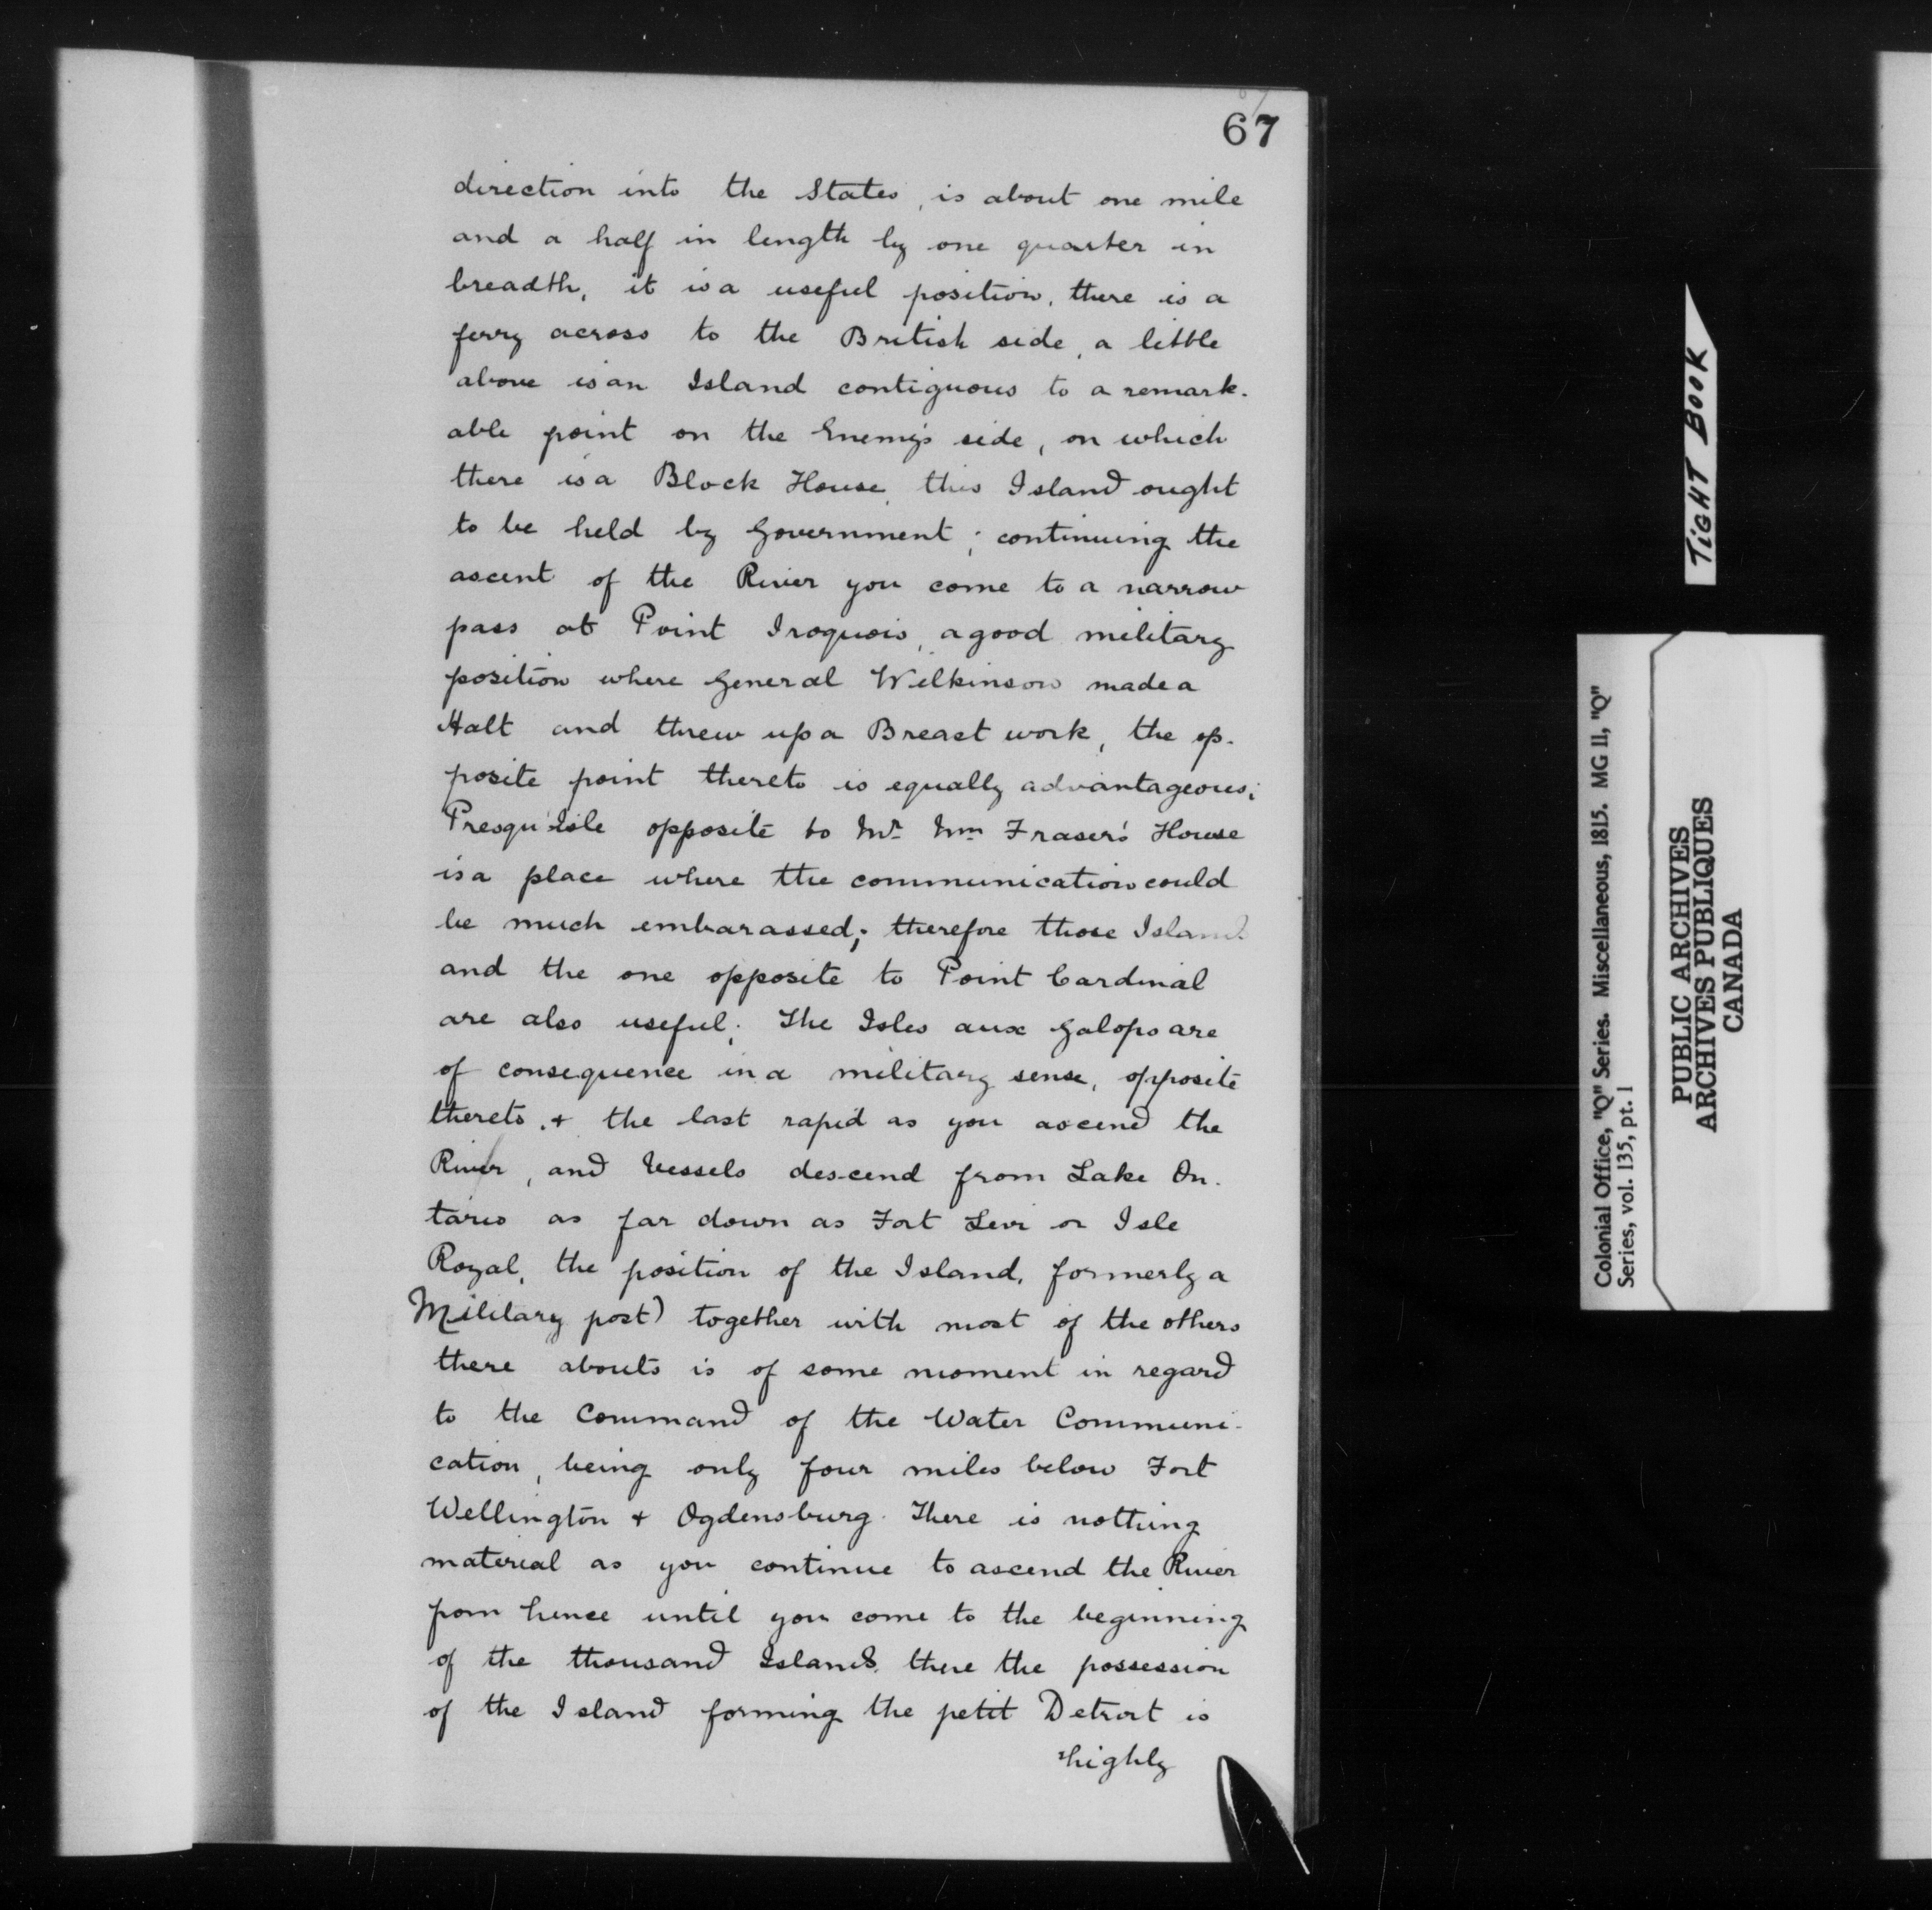 67
direction into the States, is about one mile
and a half in length by one quarter in
breadth, it is a useful position, there is a
ferry across to the British side, a little
above is an Island contiguous to a remark-
able point on the Enemy's side, on which
there is a Block House, this Island ought
to be held by Government; continuing the
ascent of the River you come to a narrow
pass at Point Iroquois, a good military
position where General Wilkinson made a
Halt and threw up a Breast work, the op-
posite point thereto is equally advantageous;
Presqu'Isle opposite to Mr. Wm Fraser's House
is a place where the communication could
be much embarassed; therefore those Islands
and the one opposite to Point Cardinal
are also useful; The Isles aux Galops are
of consequence in a military sense, opposite
thereto, + the last rapid as you ascend the
River, and Vessels descend from Lake On-
tario as far down as Fort Levi or Isle
Royal, the position of the Island, formerly a
Military post) together with most of the others
there abouts is of some moment in regard
to the Command of the Water Communi-
cation, being only four miles below Fort
Wellington + Ogdensburg. There is nothing
material as you continue to ascend the River
from hence until you come to the beginning
of the thousand Islands, there the possession
of the Island forming the petit Detroit is
highly
TiGHT BOOK
Colonial Office, "Q" Series. Miscellaneous, 1815. MG 11, "Q"
Series, vol. 135, pt. 1
PUBLIC ARCHIVES
ARCHIVES PUBLIQUES
CANADA